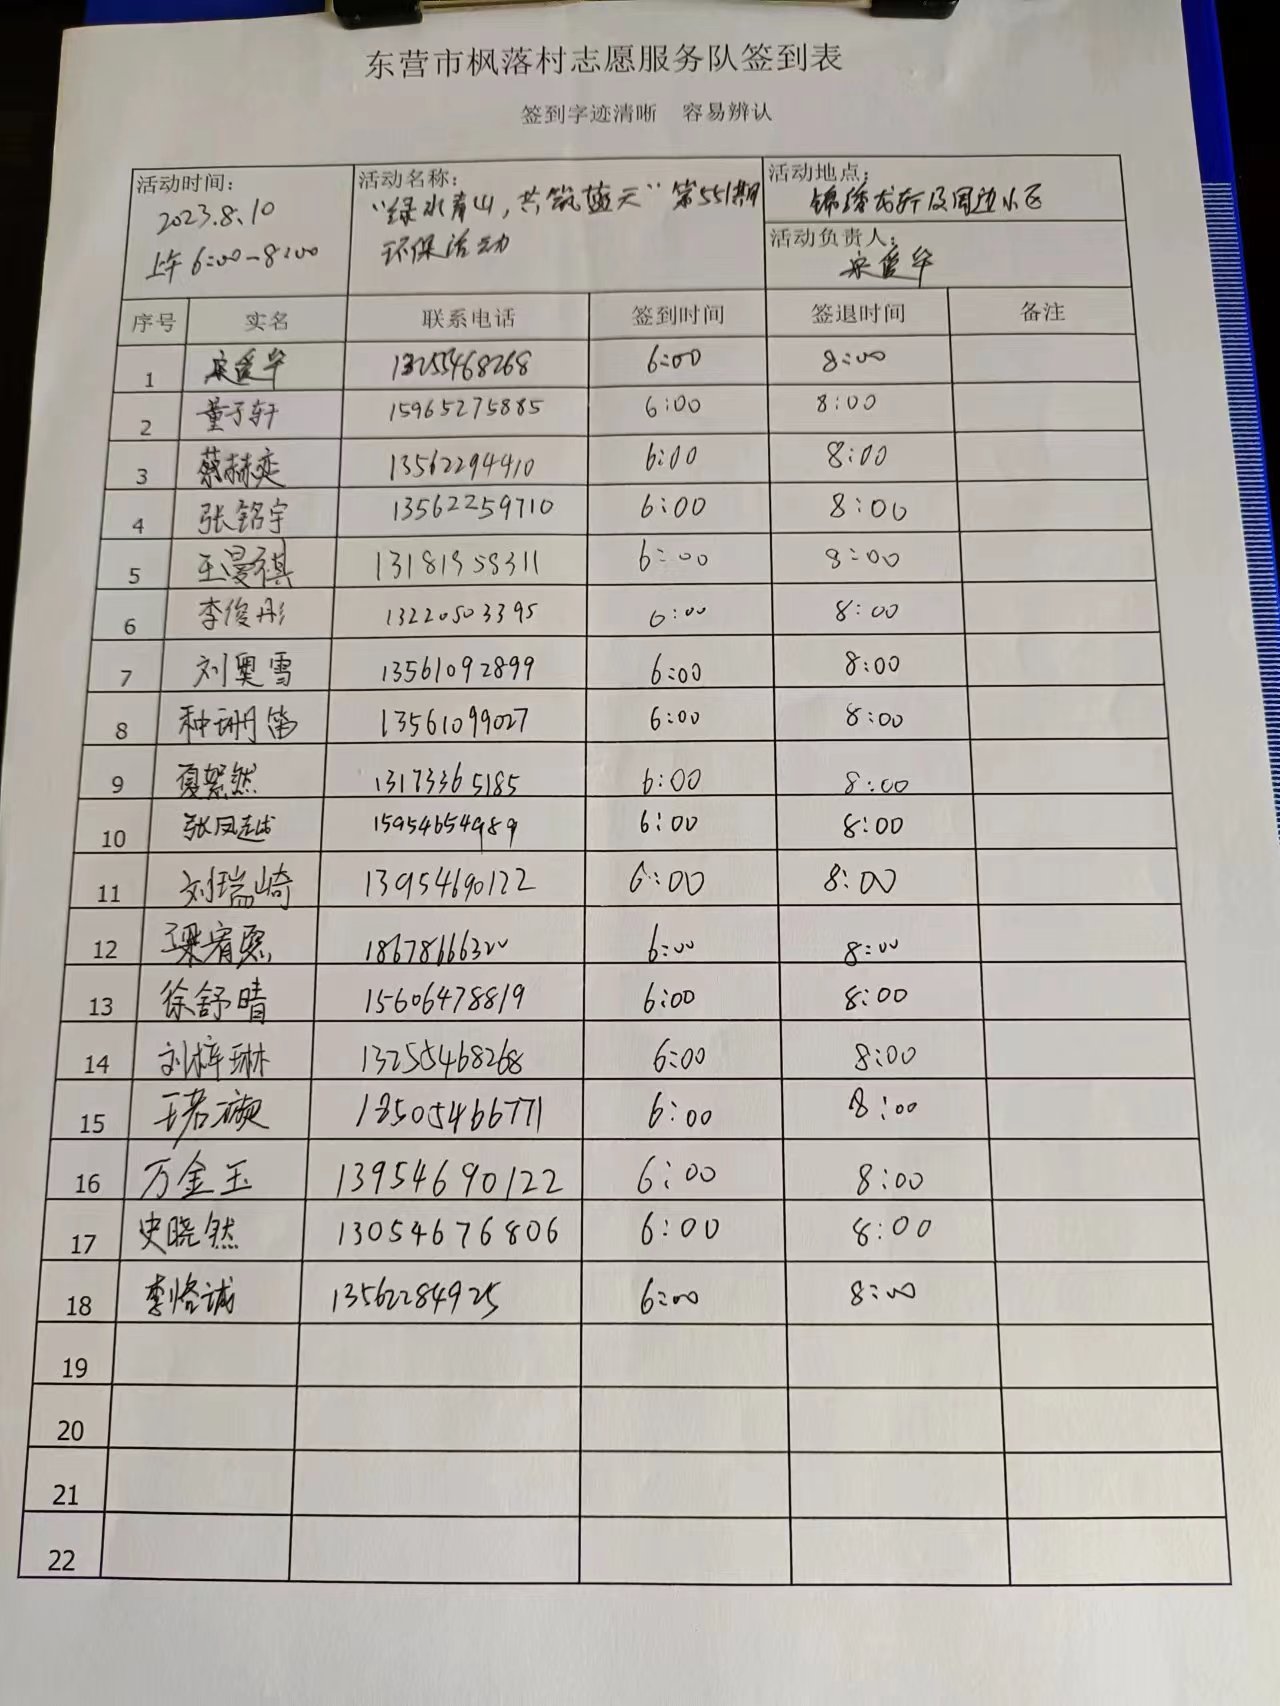 东营市枫落村志愿服务队签到表
签到字迹清晰 容易辨认
活动时间:
2023.8.10
上午 6:00-8:00
活动名称:
“绿水青山,共筑蓝天”第551期
环保活动
活动地点:
锦绣龙轩及周边小区
活动负责人:
宋爱华
序号 实名 联系电话 签到时间 签退时间 备注
1 宋爱华 13255468268 6:00 8:00
2 董子轩 15965275885 6:00 8:00
3 蔡赫奕 13562294410 6:00 8:00
4 张铭宇 13562259710 6:00 8:00
5 王漫祺 13181958311 6:00 8:00
6 李俊彤 13220503395 6:00 8:00
7 刘奥雪 13561092899 6:00 8:00
8 种珊笛 13561099027 6:00 8:00
9 夏絮然 13173365185 6:00 8:00
10 张凤越 15954654989 6:00 8:00
11 刘瑞崎 13954690122 6:00 8:00
12 梁宥熙 18678666320 6:00 8:00
13 徐舒晴 15606478819 6:00 8:00
14 刘梓琳 13255468268 6:00 8:00
15 王若璇 13505466771 6:00 8:00
16 万金玉 13954690122 6:00 8:00
17 史晓然 13054676806 6:00 8:00
18 李恪诚 13562284925 6:00 8:00
19
20
21
22